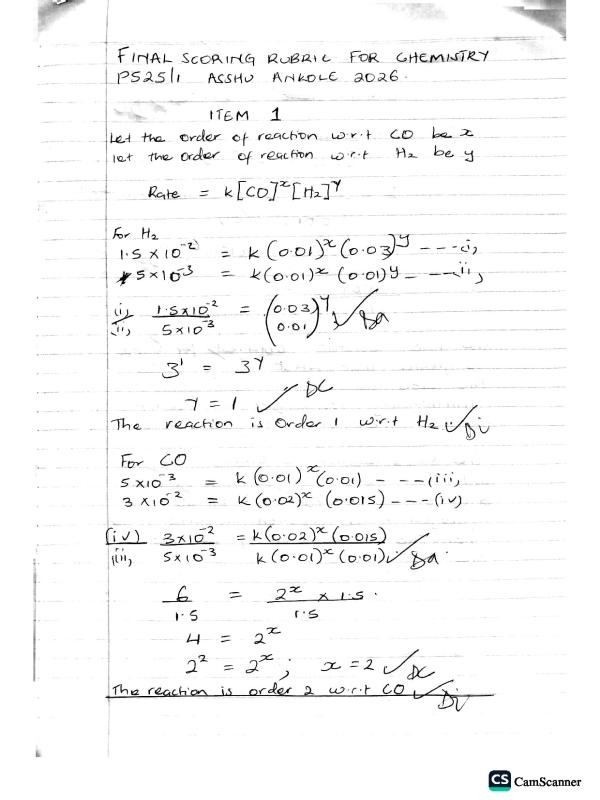 FINAL SCORING RUBRIC FOR CHEMISTRY
P525/1 ASSHU ANKOLE 2026.
ITEM 1
Let the order of reaction w.r.t CO be x
let the order of reaction w.r.t H₂ be y
Rate = k[CO]ˣ[H₂]ʸ
For H₂
1.5 x 10⁻² = k (0.01)ˣ (0.03)ʸ ---i,
5 x 10⁻³ = k (0.01)ˣ (0.01)ʸ ---ii,
i, 1.5x10⁻² = (0.03)ʸ
ii, 5x10⁻³ (0.01) ✓ Da
3¹ = 3ʸ
y = 1 ✓ DC
The reaction is order 1 w.r.t H₂ ✓ Di
For CO
5 x10⁻³ = k (0.01)ˣ (0.01) - --(iii,
3 x10⁻² = k (0.02)ˣ (0.015) --- (iv)
(iv) 3x10⁻² = k(0.02)ˣ (0.015)
(iii, 5x10⁻³ k(0.01)ˣ (0.01) ✓ Da
6 = 2ˣ x 1.5
1.5 1.5
4 = 2ˣ
2² = 2ˣ ; x = 2 ✓ DC
The reaction is order 2 w.r.t CO ✓ Di
CS CamScanner